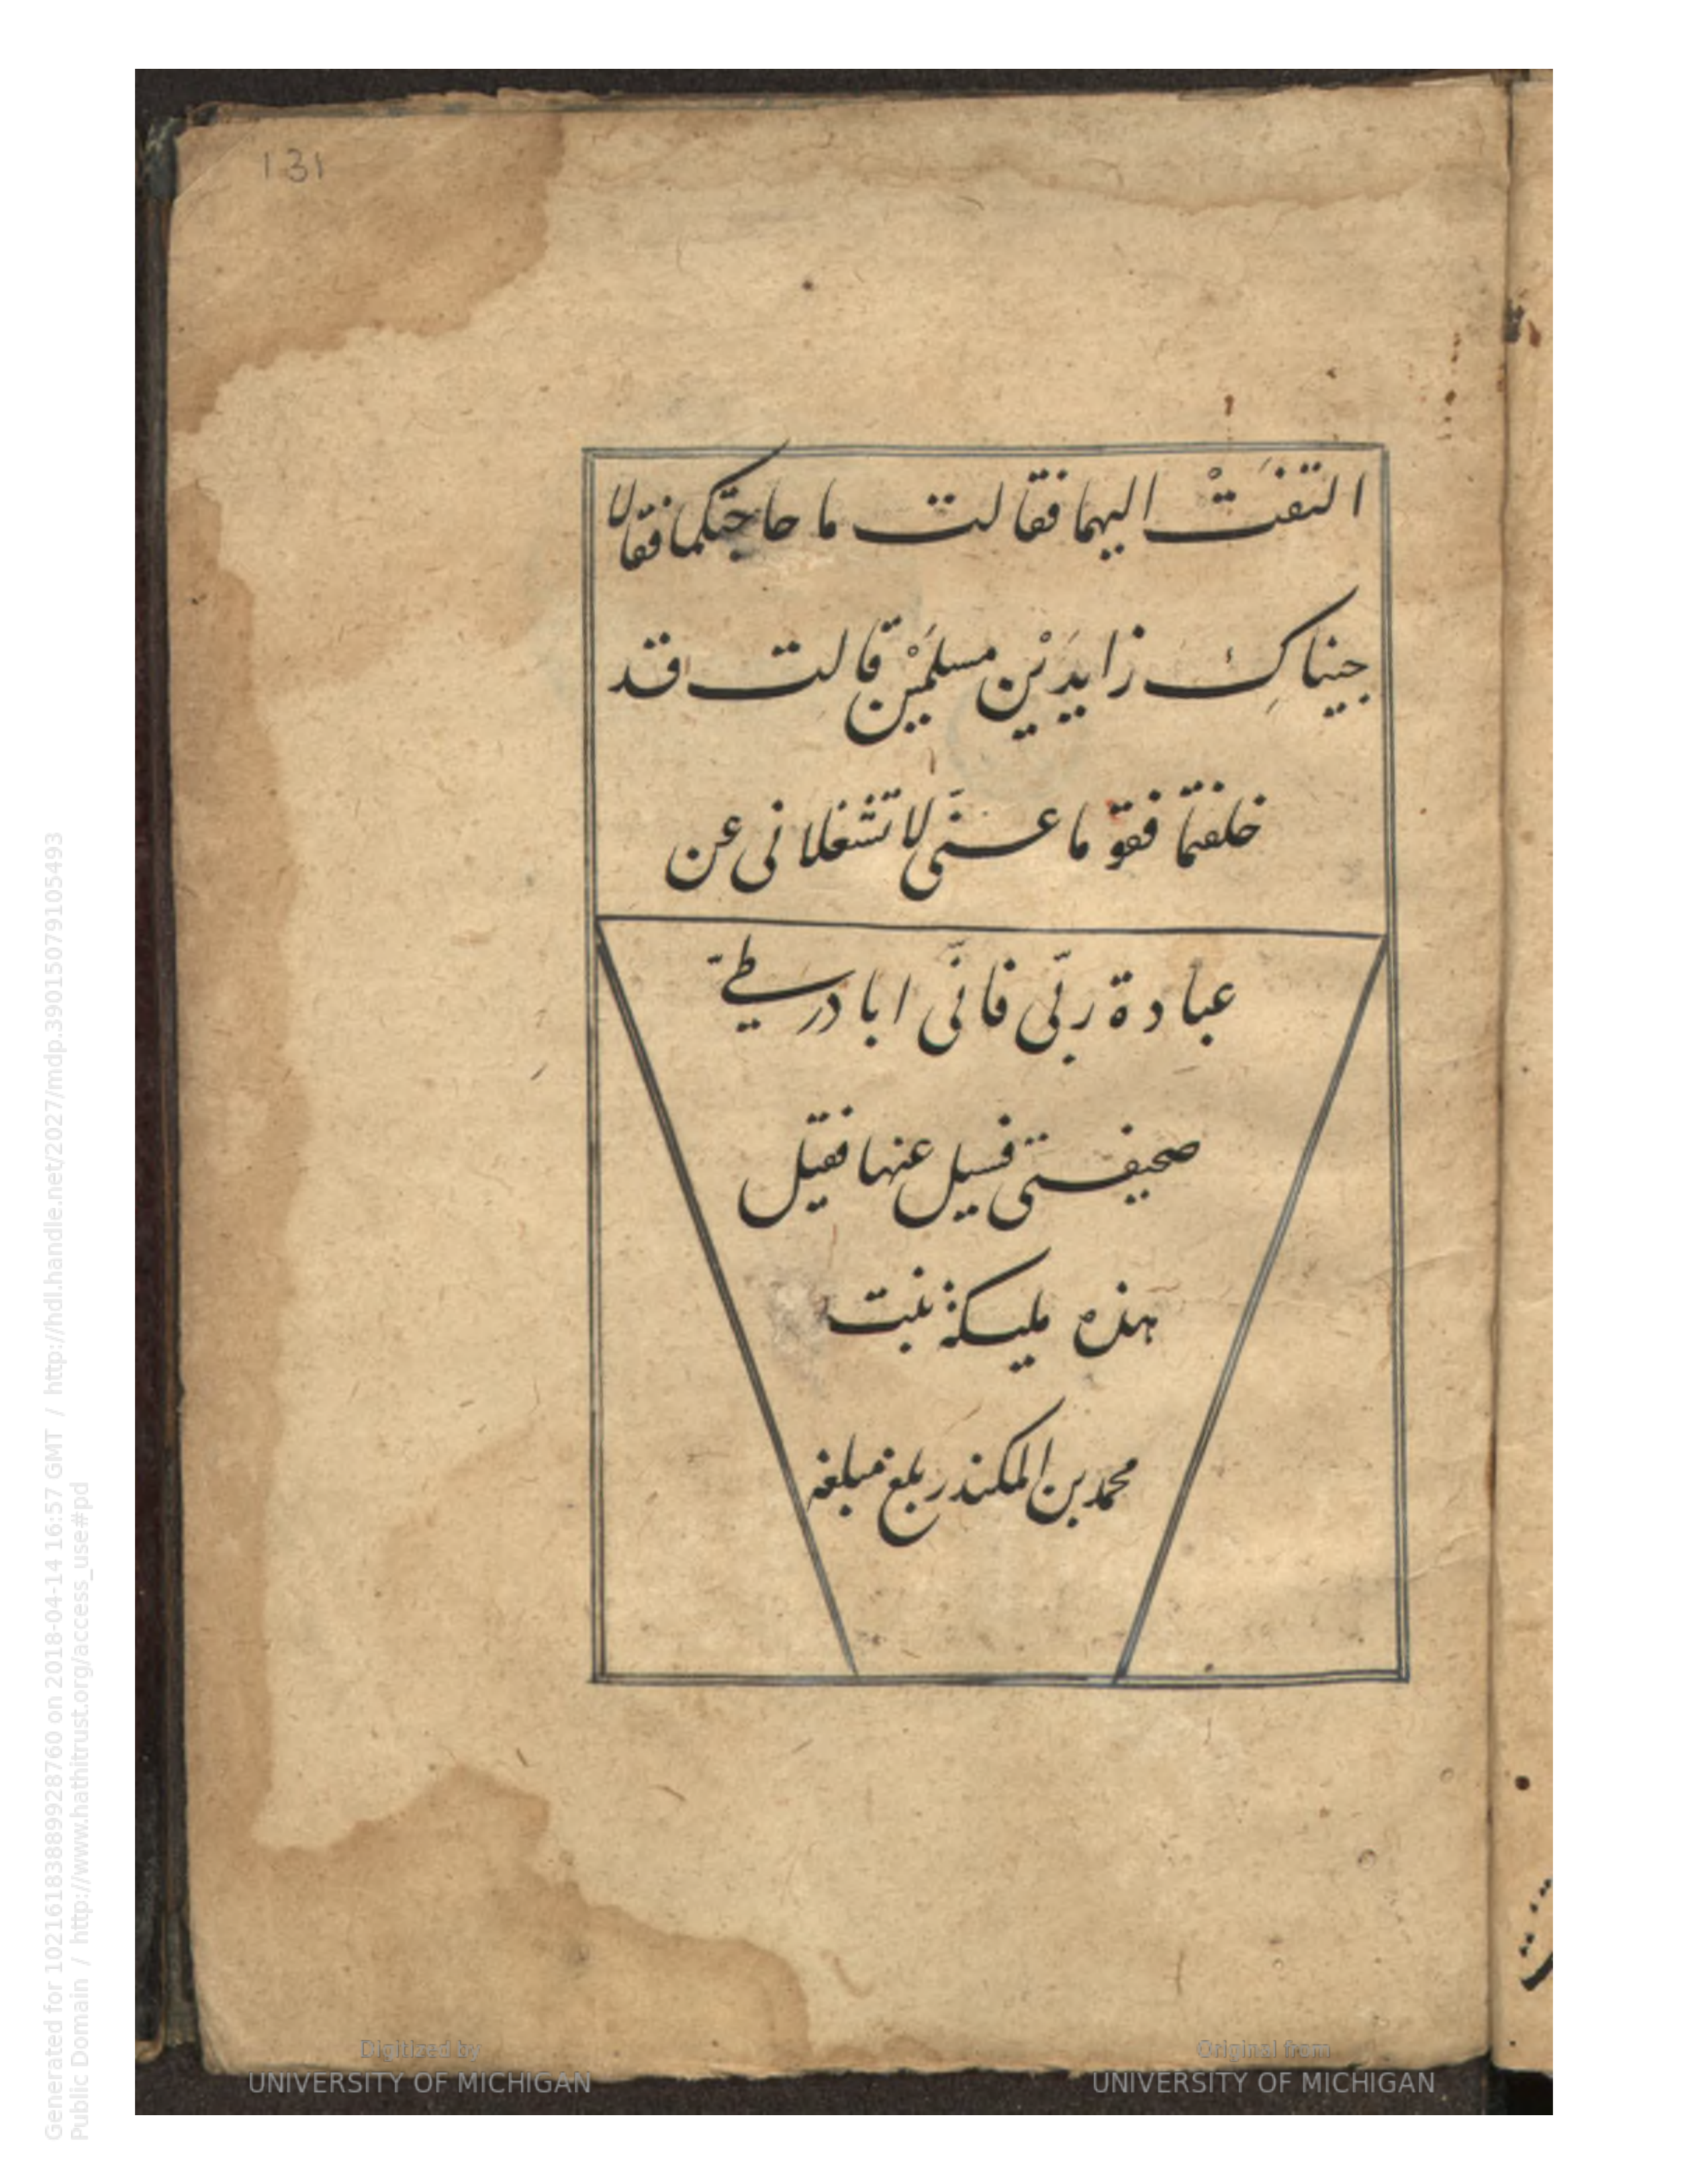 131
التفَتْ اليهما فقالت ما حاجتكما فقالا
جيناكِ زايدَيْن مسلمَيْن قالت قد
خلفتما فقوما عنّى لا تشغلانى عن
عبادة ربّى فانّى ابادر طىّ
صحيفتى فسيل عنها فقيل
هذه مليكة بنت
محمد بن المكندر بلغ مبلغه
Digitized by
UNIVERSITY OF MICHIGAN
Original from
UNIVERSITY OF MICHIGAN
Generated for 102161838899928760 on 2018-04-14 16:57 GMT / http://hdl.handle.net/2027/mdp.39015079105493
Public Domain / http://www.hathitrust.org/access_use#pd